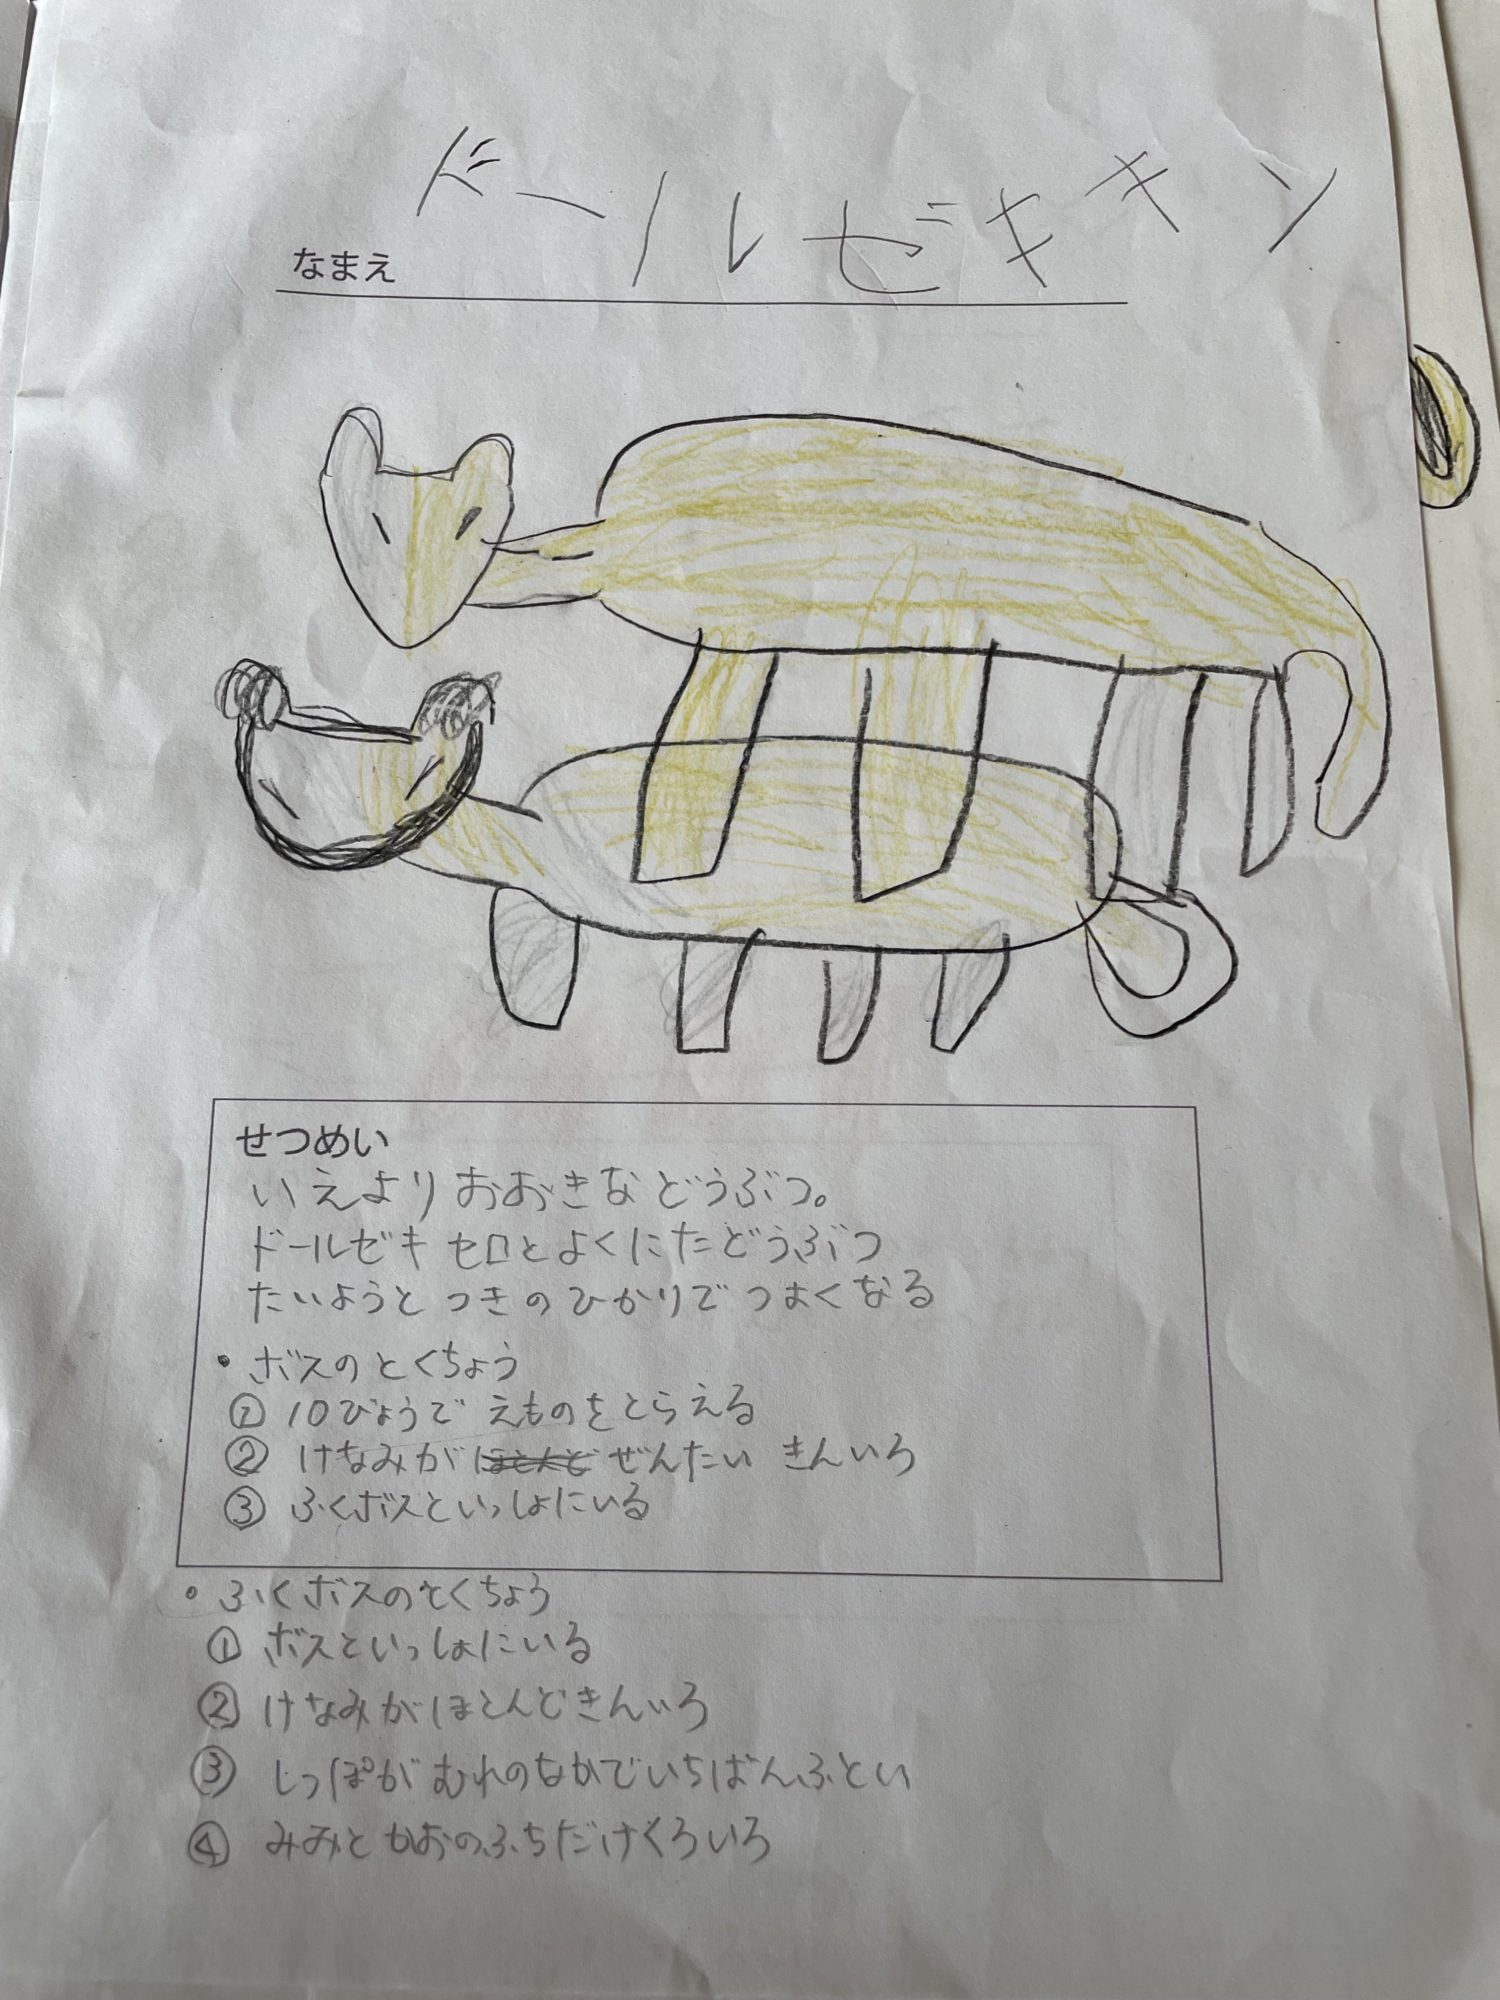 ドールゼキキン
なまえ
せつめい
いえよりおおきなどうぶつ。
ドールゼキ セロとよくにたどうぶつ
たいようと つきのひかりで つよくなる
・ボスのとくちょう
① 10びょうで えものをとらえる
② けなみが ほとんど ぜんたい きんいろ
③ ふくボスといっしょにいる
・ふくボスのとくちょう
① ボスといっしょにいる
② けなみがほとんどきんいろ
③ しっぽが むれのなかでいちばんふとい
④ みみと かおのふちだけくろいろ